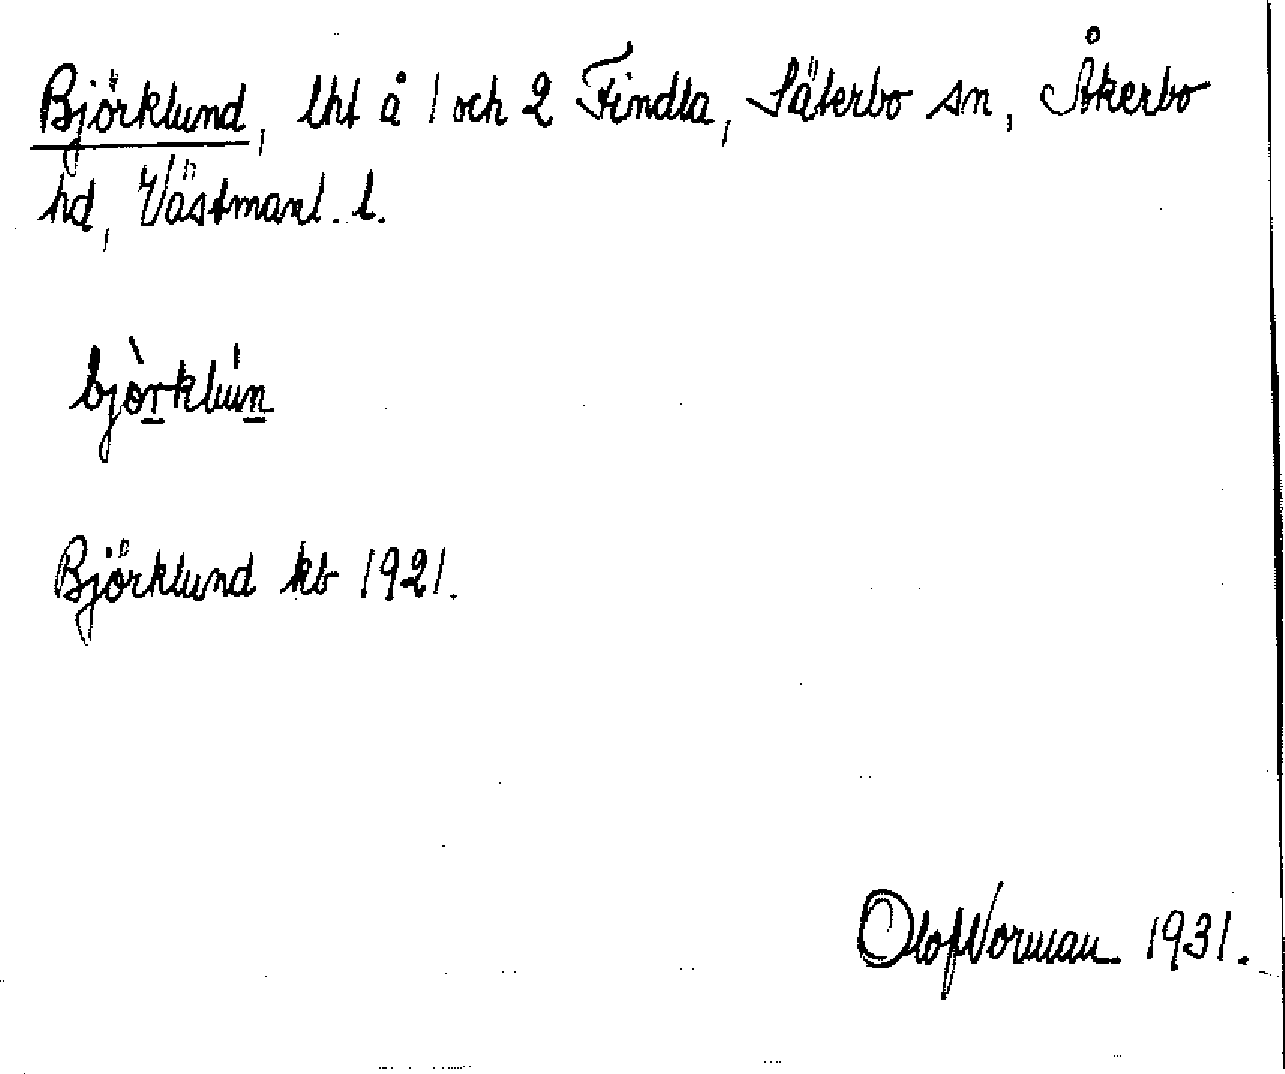 Björklund, lht å 1 och 2 Findla, Säterbo sn, Åkerbo
hd, Västmanl. l.
bjòrklún
Björklund kb 1921.
Olof Norman 1931.